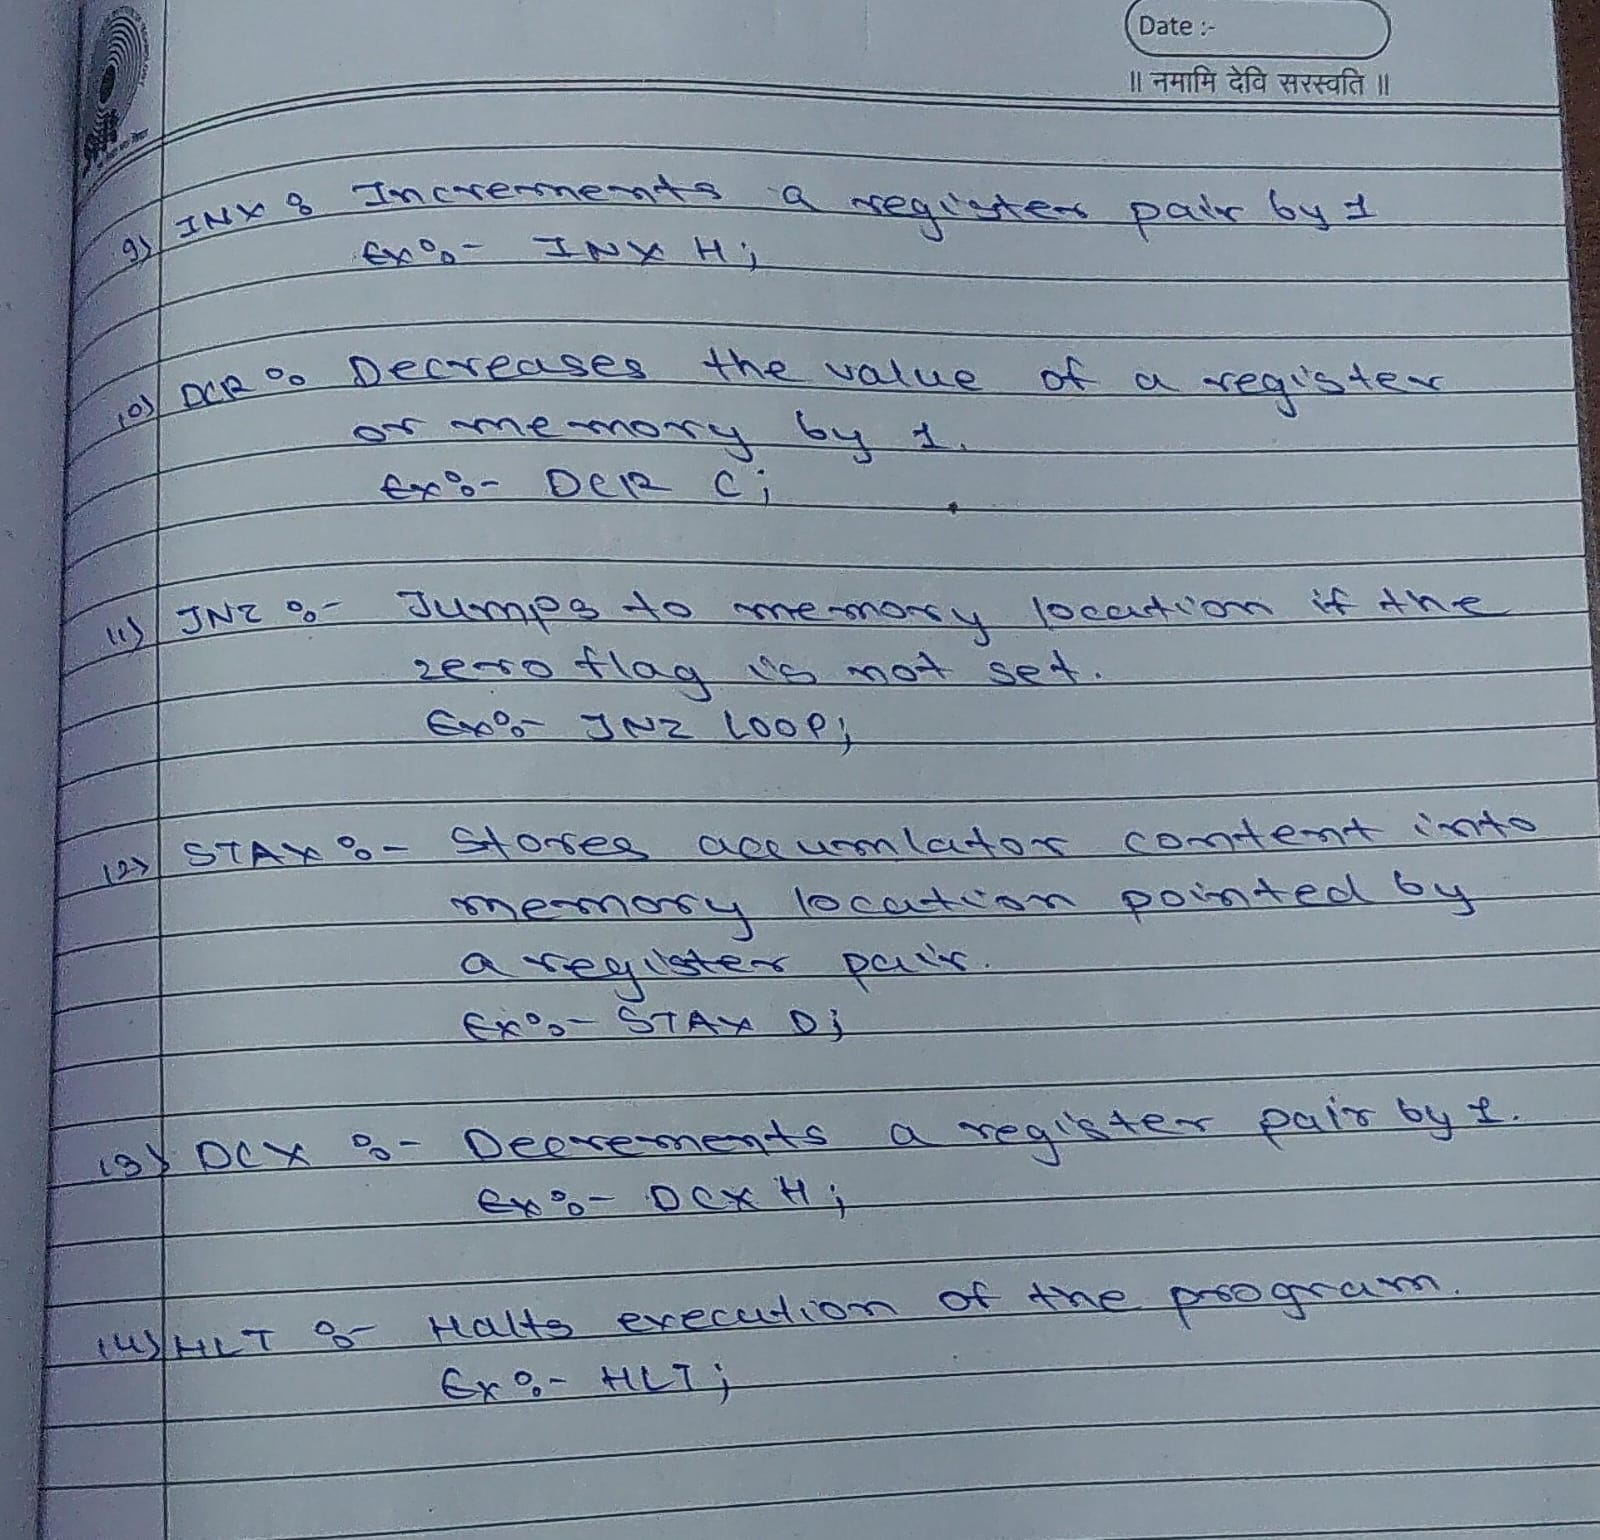 Date :-
॥ नमामि देवि सरस्वति ॥
9) INX : Increments a register pair by 1
Ex:- INX H;
10) DCR : Decreases the value of a register
or memory by 1.
Ex:- DCR C;
11) JNZ :- Jumps to memory location if the
zero flag is not set.
Ex:- JNZ LOOP;
12) STAX :- Stores accumlator content into
memory location pointed by
a register pair.
Ex:- STAX D;
13) DCX :- Decrements a register pair by 1.
Ex:- DCX H;
14) HLT :- Halts execution of the program.
Ex:- HLT;